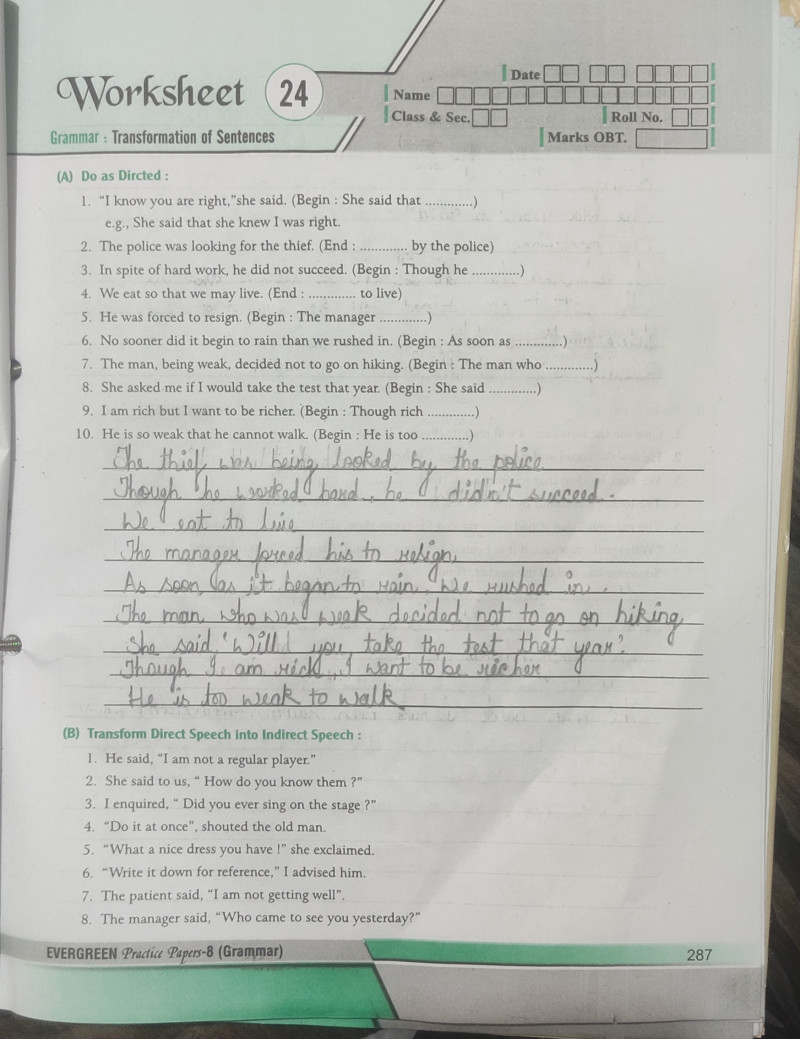 Worksheet 24
Date
Name
Class & Sec.
Roll No.
Grammar : Transformation of Sentences
Marks OBT.
(A) Do as Dircted :
1. “I know you are right,”she said. (Begin : She said that .............)
e.g., She said that she knew I was right.
2. The police was looking for the thief. (End : ............. by the police)
3. In spite of hard work, he did not succeed. (Begin : Though he .............)
4. We eat so that we may live. (End : ............. to live)
5. He was forced to resign. (Begin : The manager .............)
6. No sooner did it begin to rain than we rushed in. (Begin : As soon as .............)
7. The man, being weak, decided not to go on hiking. (Begin : The man who .............)
8. She asked me if I would take the test that year. (Begin : She said .............)
9. I am rich but I want to be richer. (Begin : Though rich .............)
10. He is so weak that he cannot walk. (Begin : He is too .............)
The thief was being looked by the police
Though he worked hard, he didn't succeed.
We eat to live
The manager forced his to resign.
As soon as it began to rain. We rushed in.
The man who was weak decided not to go on hiking
She said 'Will you take the test that year'.
Though I am rich, I want to be richer
He is too weak to walk
(B) Transform Direct Speech into Indirect Speech :
1. He said, “I am not a regular player.”
2. She said to us, “ How do you know them ?”
3. I enquired, “ Did you ever sing on the stage ?”
4. “Do it at once”, shouted the old man.
5. “What a nice dress you have !” she exclaimed.
6. “Write it down for reference,” I advised him.
7. The patient said, “I am not getting well”.
8. The manager said, “Who came to see you yesterday?”
EVERGREEN Practice Papers-8 (Grammar)
287